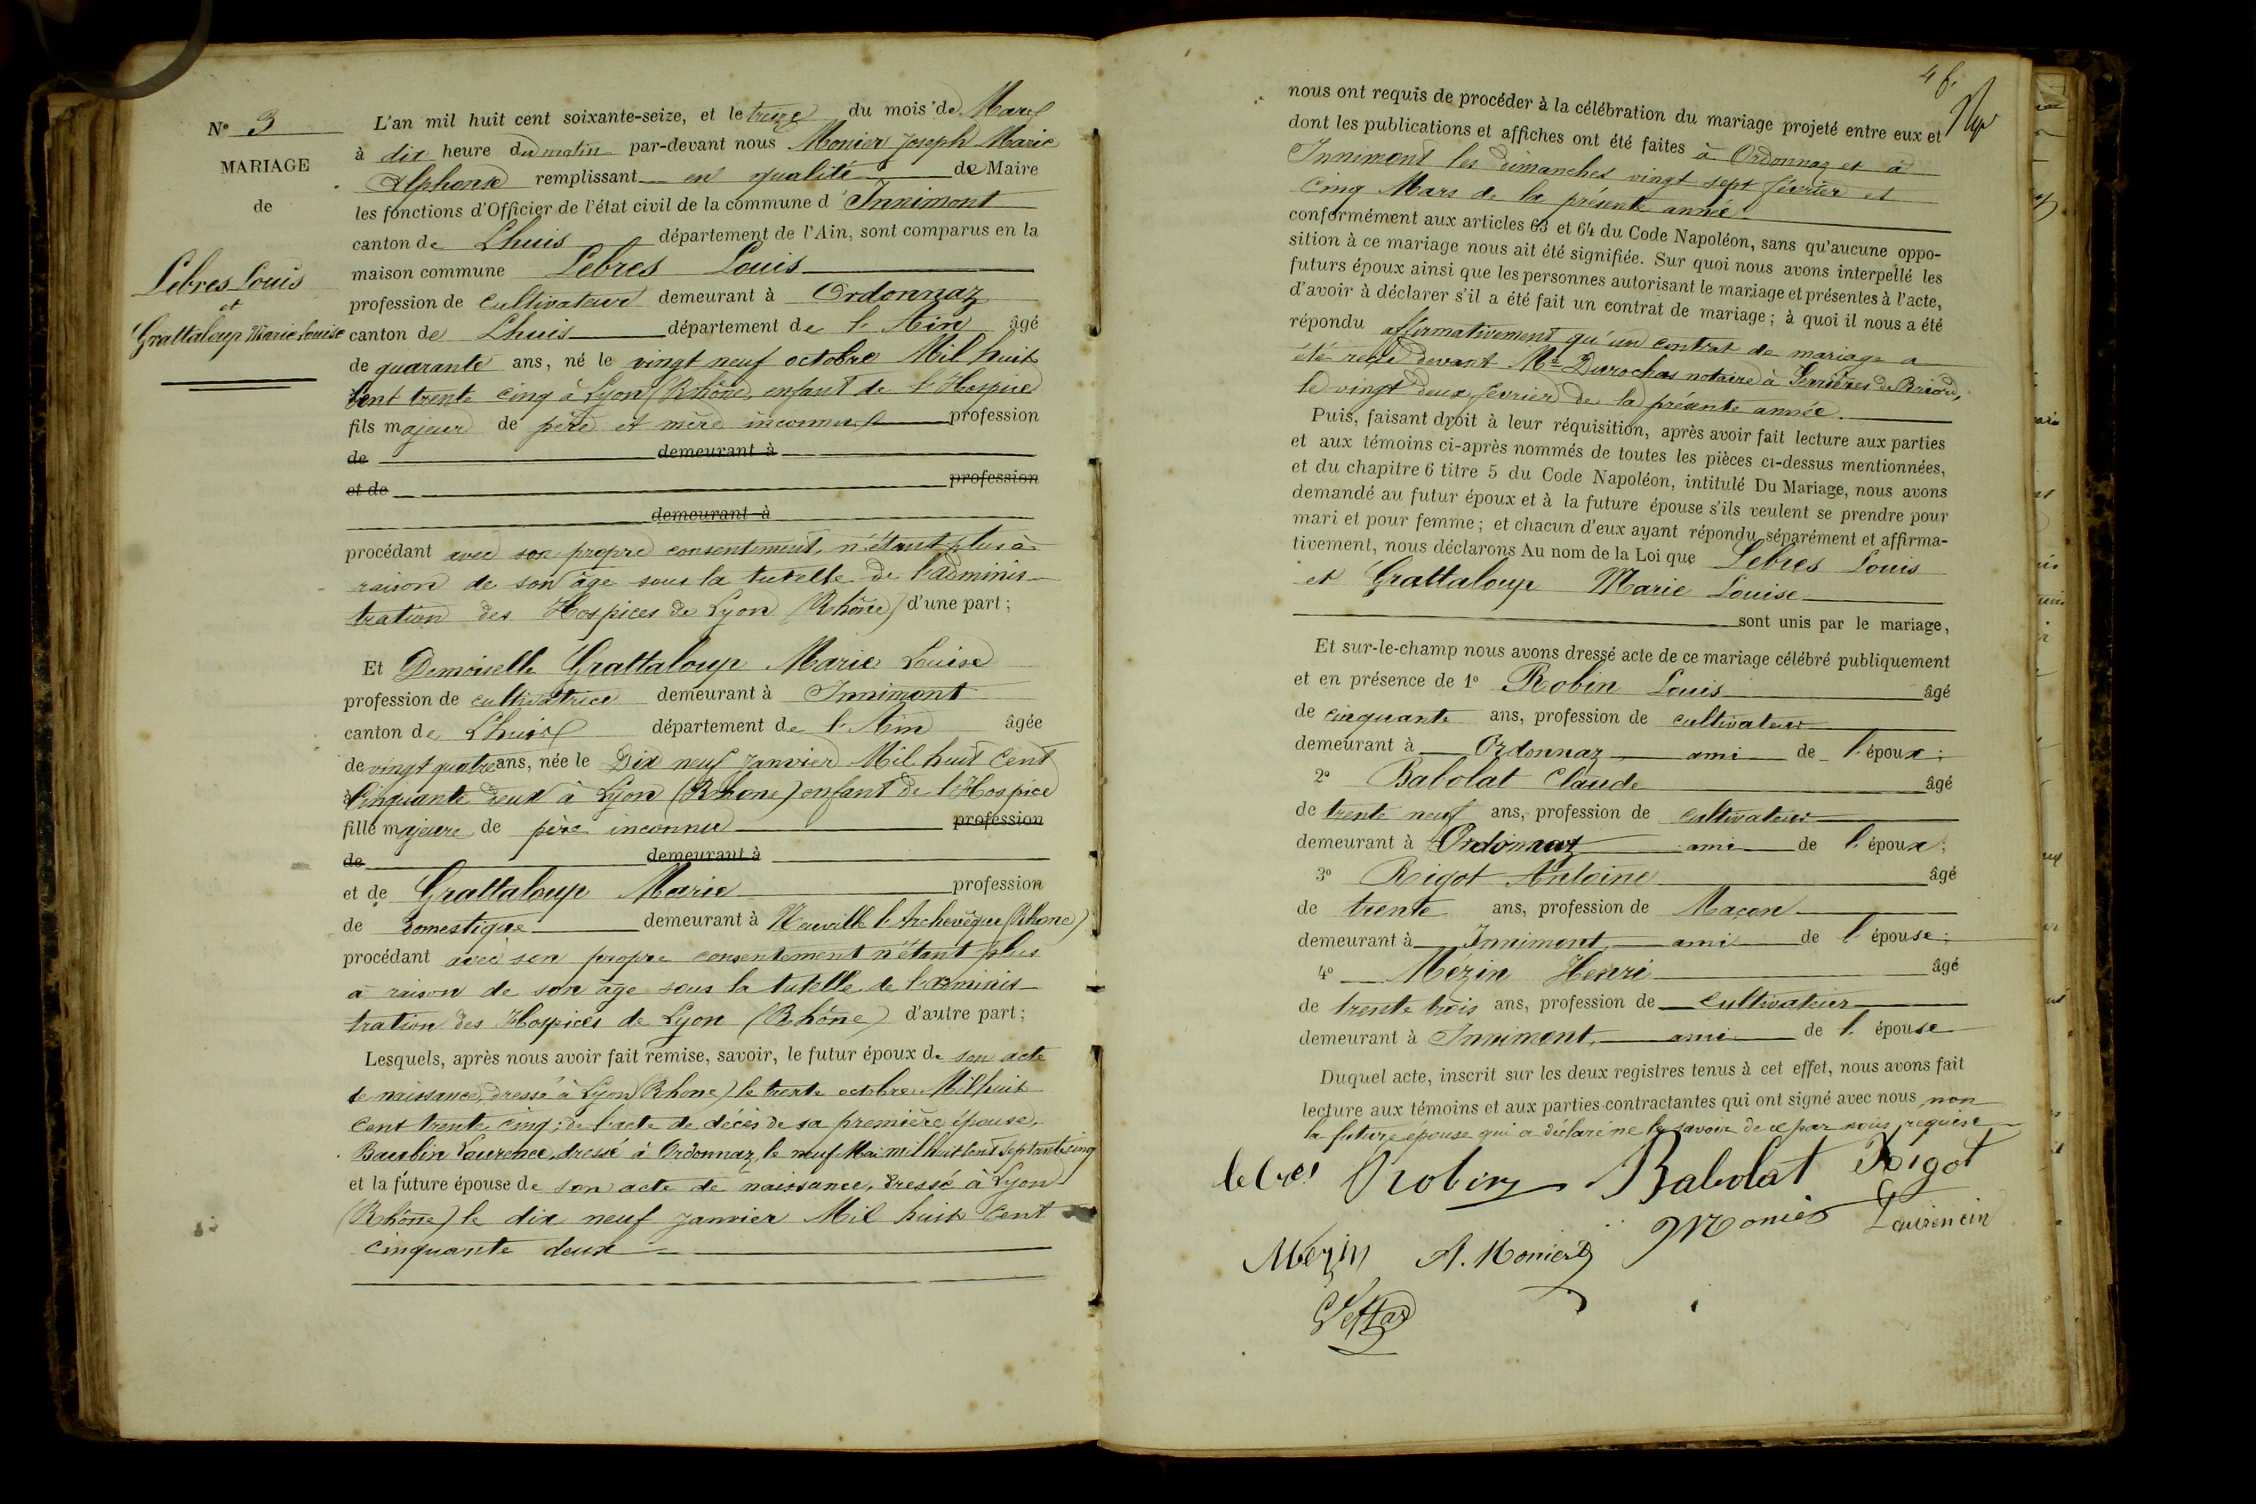 N° 3
MARIAGE
de
Lebres Louis
et
Grattaloup Marie Louise
L'an mil huit cent soixante-seize, et le treize du mois de Mars
à dix heure du matin par-devant nous Monier Joseph Marie
Alphonse remplissant en qualité de Maire
les fonctions d'Officier de l'état civil de la commune d'Innimont
canton de Lhuis département de l'Ain, sont comparus en la
maison commune Lebres Louis
profession de cultivateur demeurant à Ordonnaz
canton de Lhuis département de l'Ain âgé
de quarante ans, né le vingt neuf octobre Mil huit
Cent trente cinq à Lyon (Rhône) enfant de l'Hospice
fils majeur de père et mère inconnus profession
de demeurant à
et de profession
demeurant à
procédant avec son propre consentement, n'étant plus à
raison de son âge sous la tutelle de l'adminis-
tration des Hospices de Lyon (Rhône) d'une part;
Et Demoiselle Grattaloup Marie Louise
profession de cultivatrice demeurant à Innimont
canton de Lhuis département de l'Ain âgée
de vingt quatre ans, née le Dix neuf Janvier Mil huit Cent
Cinquante deux à Lyon (Rhone) enfant de l'Hospice
fille majeure de père inconnu profession
de demeurant à
et de Grattaloup Marie profession
de Domestique demeurant à Neuville l'Archevêque (Rhone)
procédant avec son propre consentement n'étant plus
à raison de son âge sous la tutelle de l'adminis-
tration des Hospices de Lyon (Rhône) d'autre part;
Lesquels, après nous avoir fait remise, savoir, le futur époux de son acte
de naissance, dressé à Lyon (Rhone) le trente octobre Mil huit
Cent trente cinq; de l'acte de décès de sa première épouse,
Baurbin Laurence, dressé à Ordonnaz, le neuf Mai mil huit cent septante cinq
et la future épouse de son acte de naissance, dressé à Lyon
(Rhône) le dix neuf Janvier Mil huit Cent
cinquante deux
4 f.
nous ont requis de procéder à la célébration du mariage projeté entre eux et
dont les publications et affiches ont été faites à Ordonnaz et à
Innimont les dimanches vingt sept février et
cinq Mars de la présente année
conformément aux articles 63 et 64 du Code Napoléon, sans qu'aucune oppo-
sition à ce mariage nous ait été signifiée. Sur quoi nous avons interpellé les
futurs époux ainsi que les personnes autorisant le mariage et présentes à l'acte,
d'avoir à déclarer s'il a été fait un contrat de mariage; à quoi il nous a été
répondu affirmativement qu'un contrat de mariage a
été reçu devant Me Durochas notaire à Serrières de Briord,
le vingt deux février de la présente année.
Puis, faisant droit à leur réquisition, après avoir fait lecture aux parties
et aux témoins ci-après nommés de toutes les pièces ci-dessus mentionnées,
et du chapitre 6 titre 5 du Code Napoléon, intitulé Du Mariage, nous avons
demandé au futur époux et à la future épouse s'ils veulent se prendre pour
mari et pour femme; et chacun d'eux ayant répondu séparément et affirma-
tivement, nous déclarons Au nom de la Loi que Lebres Louis
et Grattaloup Marie Louise
sont unis par le mariage,
Et sur-le-champ nous avons dressé acte de ce mariage célébré publiquement
et en présence de 1° Robin Louis âgé
de cinquante ans, profession de cultivateur
demeurant à Ordonnaz ami de l'époux;
2° Babolat Claude âgé
de trente neuf ans, profession de cultivateur
demeurant à Ordonnaz ami de l'époux;
3° Rigot Antoine âgé
de trente ans, profession de Maçon
demeurant à Innimont ami de l'épouse;
4° Mézin Henri âgé
de trente trois ans, profession de cultivateur
demeurant à Innimont, ami de l'épouse
Duquel acte, inscrit sur les deux registres tenus à cet effet, nous avons fait
lecture aux témoins et aux parties contractantes qui ont signé avec nous non
la future épouse qui a déclaré ne le savoir de ce par nous requise
Robin Babolat Rigot
Monier Laurencin
Mezin A. Monier